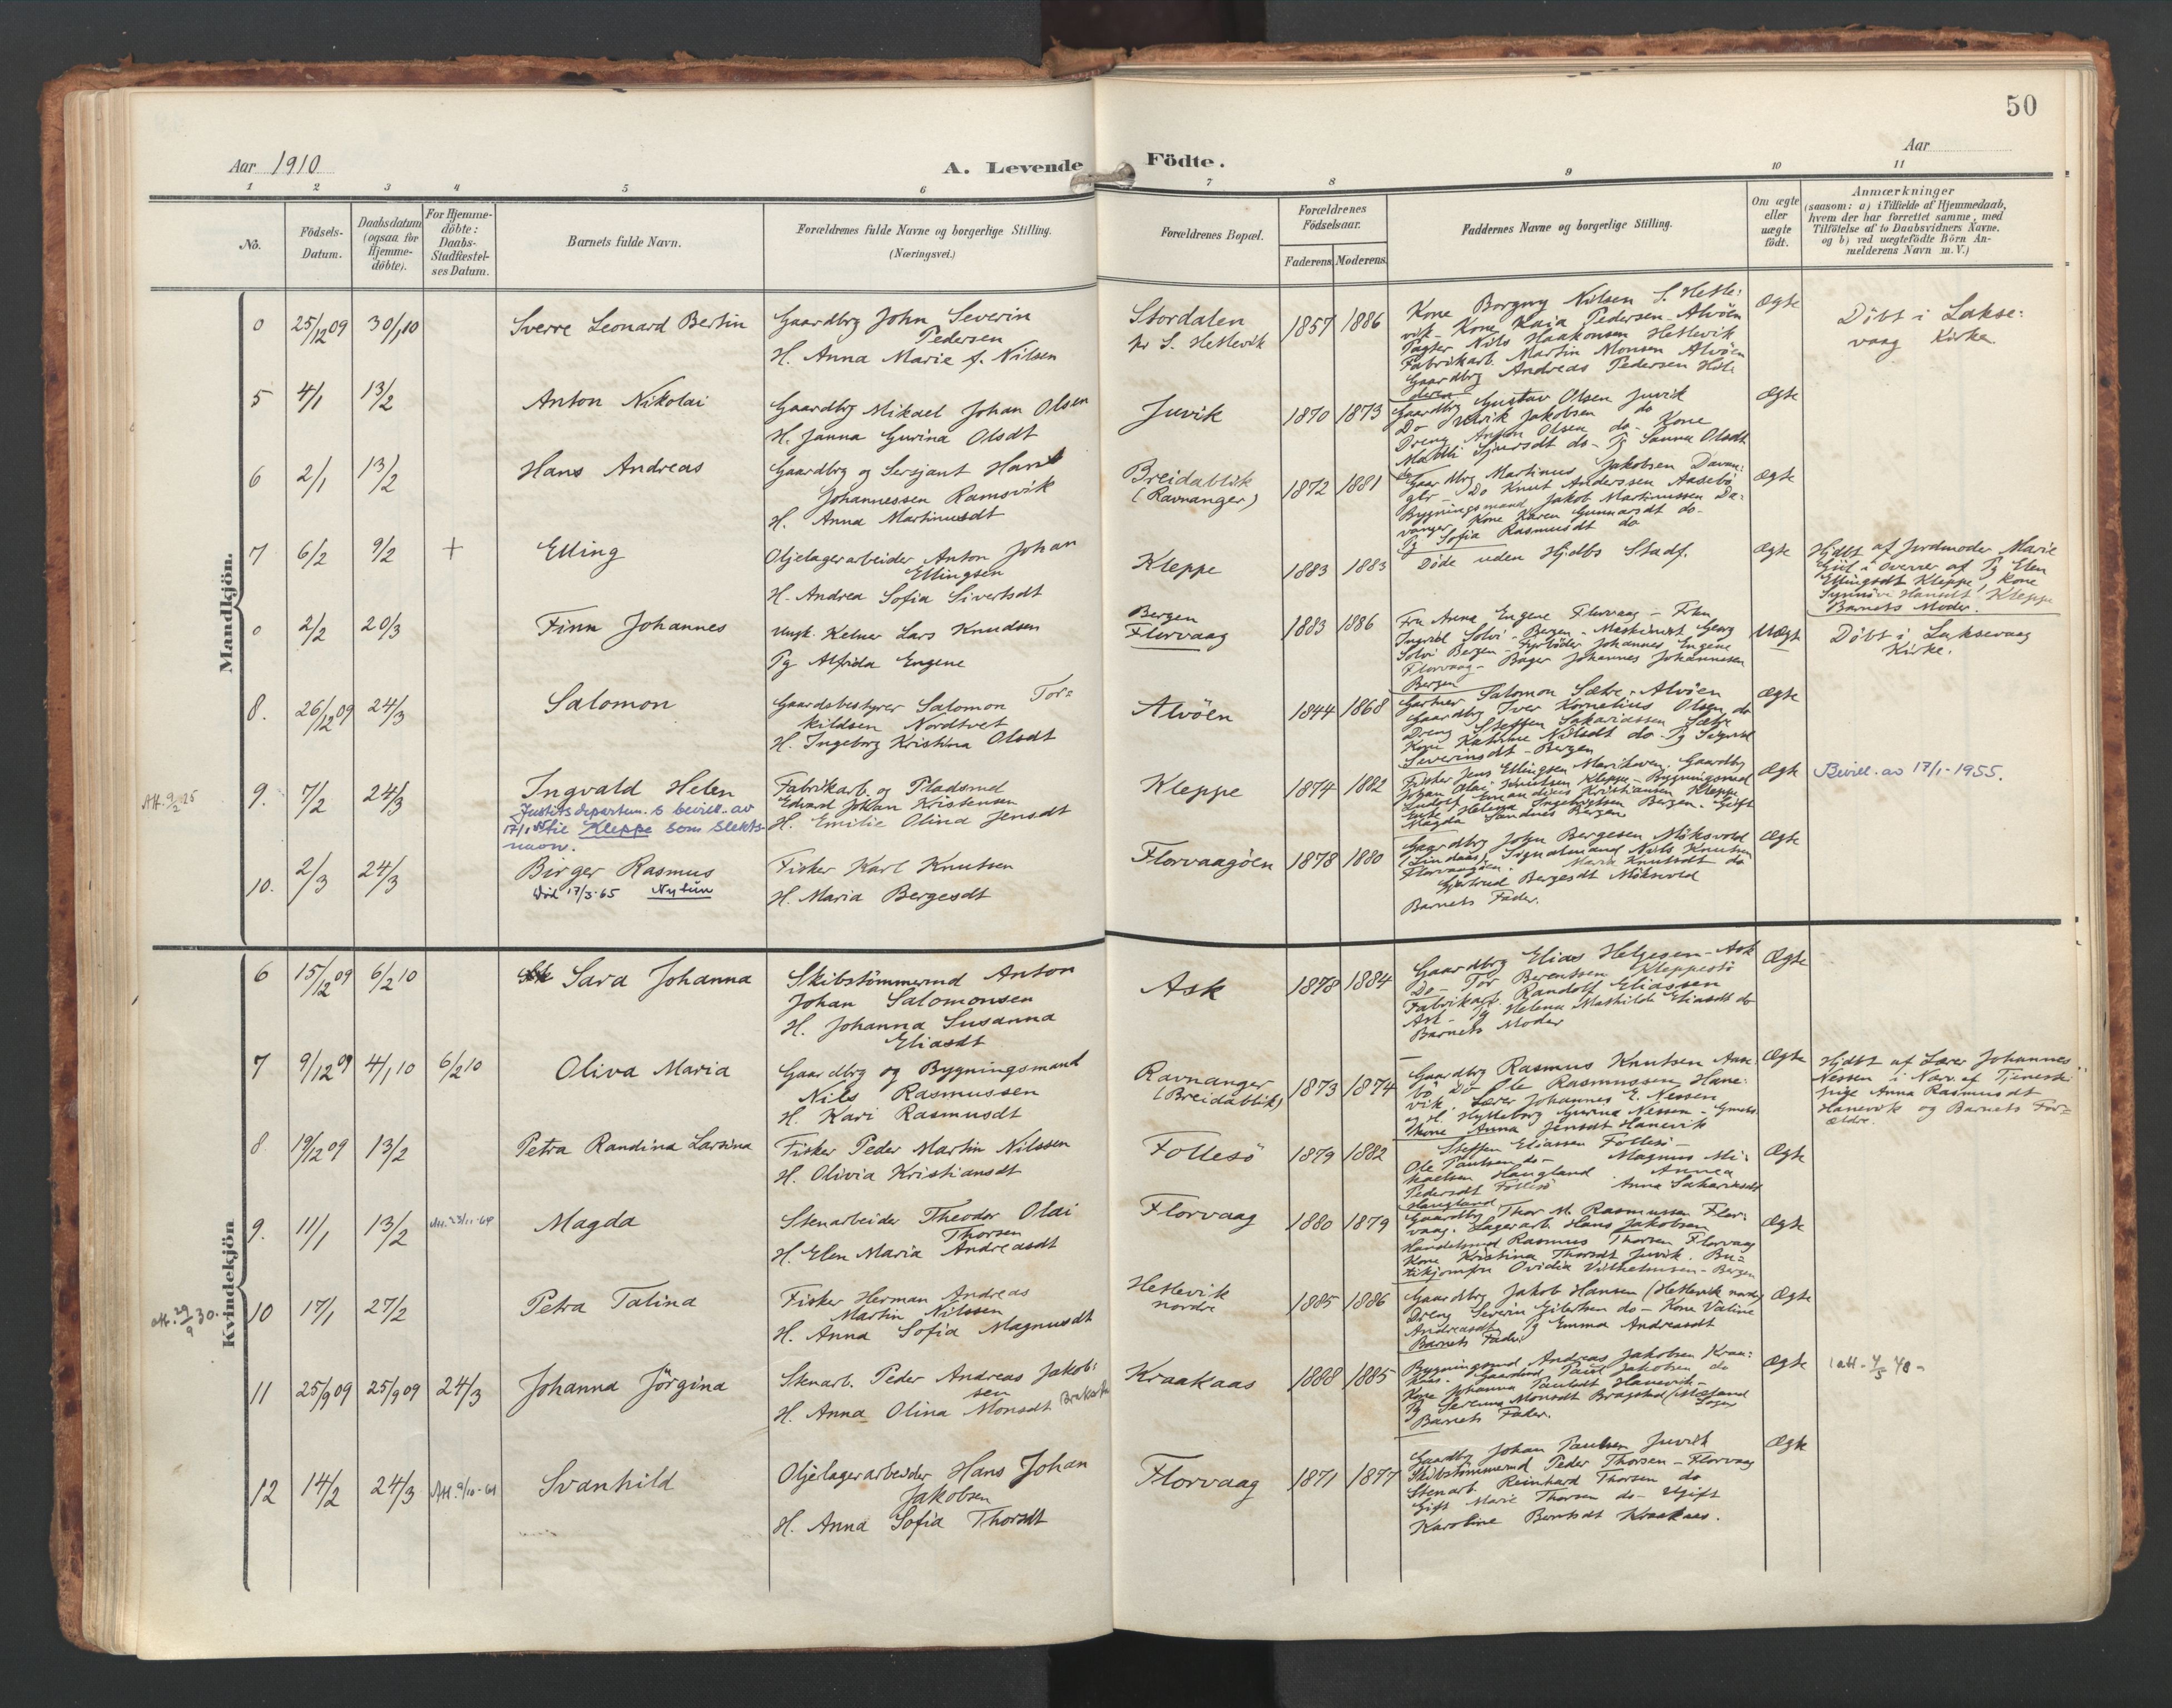 50
Aar 1910
A. Levende Födte.
Aar
1 2 3 4 5 6 7 8 9 10 11
No.
Födsels-
Datum.
Daabsdatum
(ogsaa for
Hjemme-
döbte).
For Hjemme-
döbte:
Daabs-
Stadfæstel-
ses Datum.
Barnets fulde Navn.
Forældrenes fulde Navne og borgerlige Stilling.
(Næringsvei.)
Forældrenes Bopæl.
Forældrenes
Födselsaar.
Faderens Moderens
Faddernes Navne og borgerlige Stilling.
Om ægte
eller
uægte
födt.
Anmærkninger
(saasom: a) i Tilfælde af Hjemmedaab,
hvem der har forrettet samme, med
Tilföielse af to Daabsvidners Navne,
og b) ved uægtefödte Börn An-
melderens Navn m. V.)
Mandkjön.
0 25/12 09 30/1 10 Sverre Leonard Bertin
Gaardbrg John Severin
Pedersen
H. Anna Marie f. Nilsen
Stordalen
pr S. Hetlevik
1857 1886
Kone Borgny Nilsen S. Hetle:
vik - Kone Kaia Pedersen - Alvöen
Pagter Nils Haakonsen Hetlevik
Fabrikarb. Martin Monsen Alvöen
Gaardbrg Andreas Pedersen
Ægte
Döbt i Lakse:
vaag Kirke
5 4/1 13/2 Anton Nikolai
Gaardbrg Mikael Johan Olsen
H. Janna Gurina Olsdt
Juvik
1870 1873
Gaardbrg Gustav Olsen Juvik
Do Jakobsen do
Dreng Anton Olsen do - Kone
Sjursdt do - Pg Sanna Olsdt
do
Ægte
6 2/1 13/2 Hans Andreas
Gaardbrg og Sersjant Hans
Johannessen Ramsvik
H. Anna Martinusdt
Breidablik
(Ravnanger)
1872 1881
Gaardbrg Martinus Jakobsen Davan:
ger - Do Knut Anderssen Aasebö
Bygningsmand Jakob Martinussen Da:
vanger, Kone Karen Gunnarsdt do -
Pg Sofia Rasmusdt do
Ægte
7 6/2 9/2 + Elling
Oljelagerarbeider Anton Johan
Ellingsen
H. Andrea Sofia Sivertsdt
Kleppe
1883 1883
Döde uden Hjdbs Stadf.
Ægte
Hjdbt af Jordmoder Marie
Giil i Overvær af Pg Elen
Ellingsdt Kleppe, Kone
Synnövi Hansdt Kleppe
Barnets Moder.
0 2/2 20/3 Finn Johannes
Ungk. Kelner Lars Knudsen
Pg Alfrida Engene
Bergen
Florvaag
1883 1886
Fru Anna Engene Florvaag - Fru
Ingrid Solvi - Bergen - Maskinist Georg
Solvi Bergen - Fyrböder Johannes Engene
Florvaag - Bager Johannes Johannesen
Bergen
Uægte
Döbt i Laksevaag
Kirke.
8. 26/12 09 24/3 Salomon
Gaardsbestyrer Salomon Tor=
kildsen Nordtvet
H. Ingeborg Kristina Olsdt
Alvöen
1844 1868
Gartner Salomon Sætre - Alvöen
Gaardbrg Iver Kornelius Olsen do
Dreng Steffen Sakariassen Sætre
Kone Katrine Nilsdt do - Pg Sigrid
Severinsdt - Bergen
Ægte
Att. 9/2 25
9. 7/2 24/3 Ingvald Helen
Justitsdepartem.s bevill. av
17/1 55 til Kleppe som Slekts-
navn.
Fabrikarb. og Pladsmd
Edvard Johan Kristensen
H. Emilie Olina Jensdt
Kleppe
1874 1882
Fisker Jens Ellingsen Marikoven. Gaardbrg
Johan Olai Knutsen Kleppe - Bygningsmd
Ludolf Kristiansen Kleppe
Enke Helena Ingebrigtsen Bergen. Gift
Magda Sandnes Bergen
Ægte
Bevill. av 17/1-1955.
10. 2/3 24/3 Birger Rasmus
Död 17/3-65 Nytun
Fisker Karl Knutsen
H. Maria Bergesdt
Florvaagöen
1878 1880
Gaardbrg John Bergesen Möksvold
(Lindaas), Signalmand Nils Knutsen
Florvaagöen. Maria Knutsdt do
Gjertrud Bergesdt Möksvold
Barnets Fader.
Ægte
Kvindekjön
6 15/12 09 6/2 10 Sara Johanna
Skibstömmermd Anton
Johan Salomonsen
H. Johanna Susanna
Eliasdt
Ask
1878 1884
Gaardbrg Elias Helgesen - Ask
Do - Tor Berentsen Kleppestö
Fabrikarb. Randolf Eliassen
Ask - Pg Helena Mathilde Eliasdt do
Barnets Moder
Ægte
7 9/12 09 4/1 10 6/2 10 Oliva Maria
Gaardbrg og Bygningsmand
Nils Rasmussen
H. Kari Rasmusdt
Ravnanger
(Breidablik)
1873 1874
Gaardbrg Rasmus Knutsen Aase:
bö Do Ole Rasmussen Hane:
vik. Lærer Johannes E. Nessen
og H. Hylleborg Gurina Nessen -
Kone Anna Jensdt Hanevik
Ægte
Hjdbt af Lærer Johannes
Nessen i Nærv. af Tjeneste
pige Anna Rasmusdt
Hanevik og Barnets For=
ældre.
8 19/12 09 13/2 Petra Randina Larsina
Fisker Peder Martin Nilssen
H. Olivia Kristiansdt
Follesö
1879 1882
Steffen Eliassen Follesö -
Ole Paulsen do - Magnus Mi:
kaelsen Haugland Annea
Pedersdt Follesö Anna Sakariasdt
Haugland
Ægte
9. 11/1 13/2 Att. 23/11-64 Magda
Stenarbeider Theodor Olai
Thorsen
H. Elen Maria Andreasdt
Florvaag
1880 1879
Gaardbrg Thor M. Rasmussen Flor:
vaag. Lagerarb. Hans Jakobsen
Handelsmd Rasmus Thorsen Florvaag
Kone Kristina Thorsdt Juvik. Bu=
tikjomfru Ovidia Vilhelmsen - Bergen
Ægte
att. 29/9 30.
10 17/1 27/2 Petra Talina
Fisker Herman Andreas
Martin Nilssen
H. Anna Sofia Magnusdt
Hetlevik
nordre
1885 1886
Gaardbrg Jakob Hansen (Hetlevik nordre)
Dreng Severin Gilertsen do - Kone Valine
Andreasdt, Pg Emma Andreasdt
Barnets Fader
Ægte
11 25/9 09 25/9 09 24/3 Johanna Jörgina
Stenarb. Peder Andreas Jakob:
sen
H. Anna Olina Monsdt
Kraakaas
1888 1885
Bygningsmd Andreas Jakobsen Kraa:
kaas. Gaardmd Paul Jakobsen do
Kone Johanna Paulsdt Hanevik -
Pg Severine Monsdt Bragstad (Meland
Sogn)
Barnets Fader.
Ægte
att. 4/5 48 -
12 14/2 24/3 Att. 9/10-61 Svanhild
Oljelagerarbeider Hans Johan
Jakobsen
H. Anna Sofia Thorsdt
Florvaag
1871 1877
Gaardbrg Johan Paulsen Juvik
Skibstömmermd Peder Thorsen - Florvaag
Stenarb Reinhard Thorsen do
Gift Marie Thorsen do - Ugift
Karoline Berntsdt Kraakaas.
Ægte